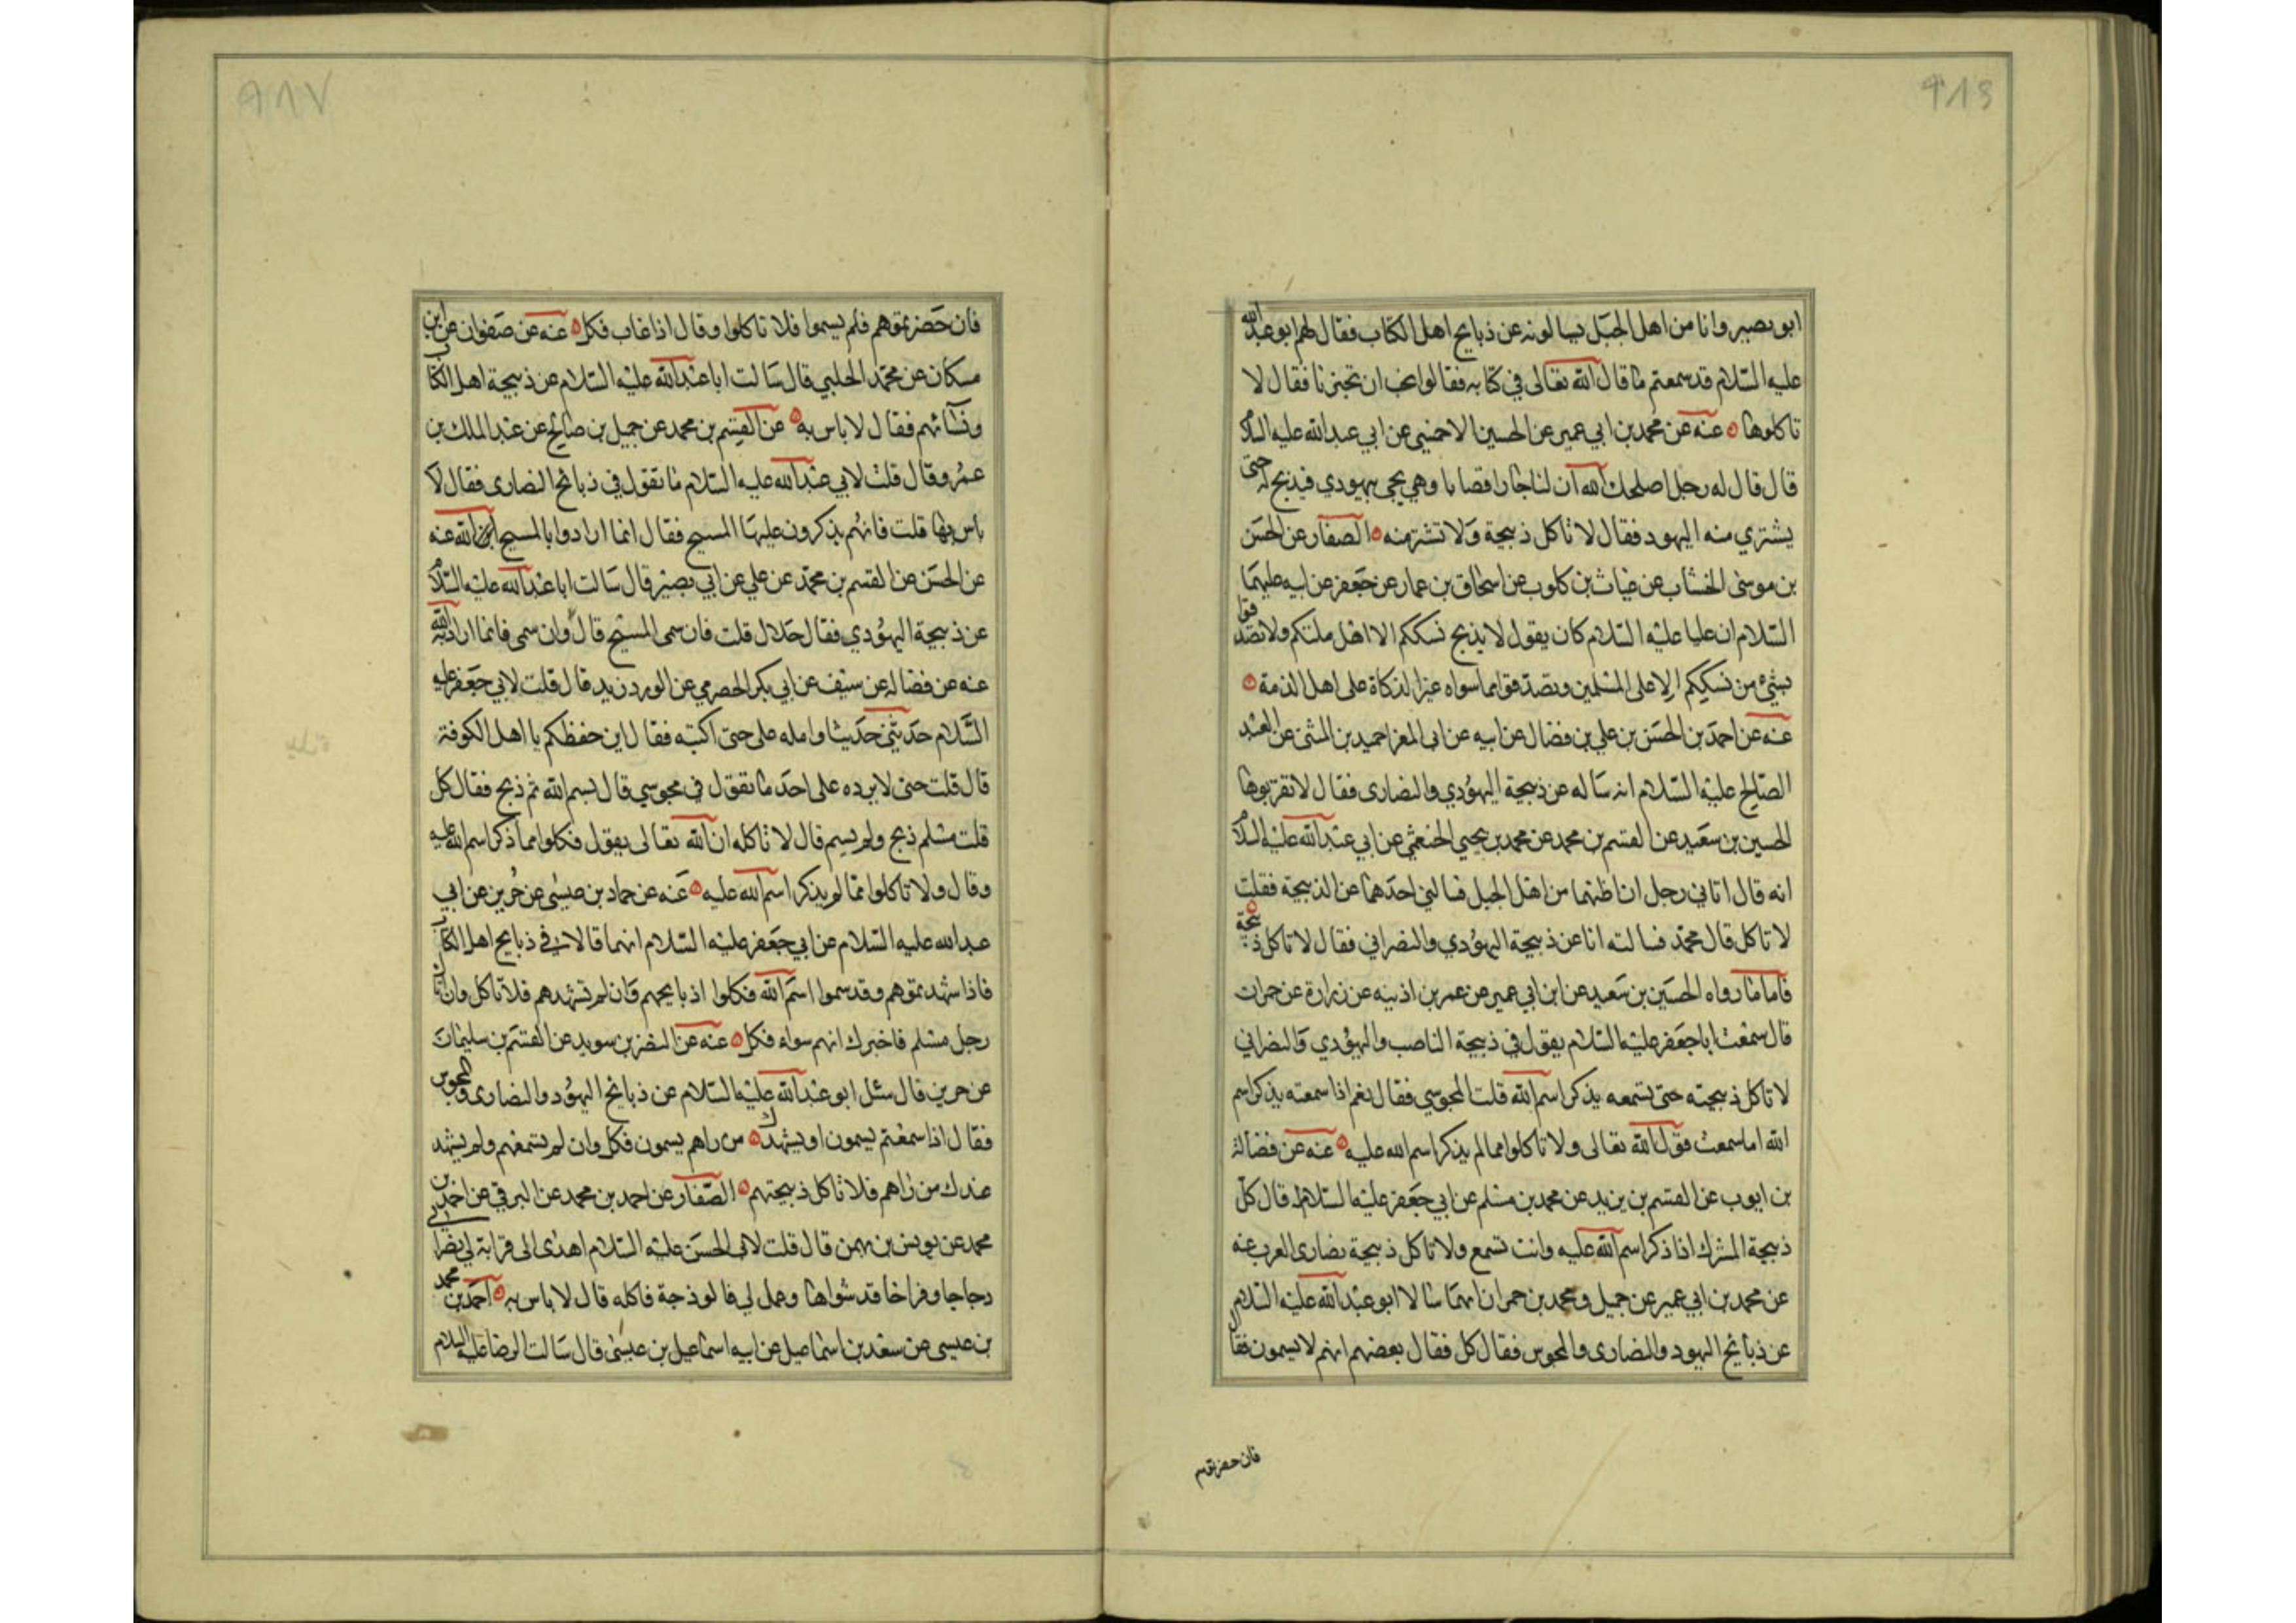 ٩١٦
ابو بصير وانا من اهل الجبل يسالونه عن ذبايح اهل الكتاب فقال لهم ابو عبد الله
عليه السلام قد سمعتم ما قال الله تعالى في كتابه فقالوا نحب ان تخبرنا فقال لا
تاكلوها عنه عن محمد بن ابي عمير عن الحسين الاحمسي عن ابي عبد الله عليه السلام
قال قال له رجل اصلحك الله ان لنا جارا قصابا وهي يجي بيهودي فيذبح له حتى
يشتري منه اليهود فقال لا تاكل ذبيحة ولا تشتر منه الصفار عن الحسن
بن موسى الخشاب عن غياث بن كلوب عن اسحاق بن عمار عن جعفر عن ابيه عليهما
السلام ان عليا عليه السلام كان يقول لا يذبح نسككم الا اهل ملتكم ولا تصدقوا
بشيء من نسككم الا على المسلمين وتصدقوا بما سواه غير الزكاة على اهل الذمة
عنه عن احمد بن الحسن بن علي بن فضال عن ابيه عن ابي المغرا حميد بن المثنى عن العبد
الصالح عليه السلام انه ساله عن ذبيحة اليهودي والنصارى فقال لا تقربوها
الحسين بن سعيد عن القسم بن محمد عن محمد بن يحيي الخثعمي عن ابي عبد الله عليه السلام
انه قال اتاني رجلان اظنهما من اهل الجبل فسالني احدهما عن الذبيحة فقلت
لا تاكل قال محمد فسالته انا عن ذبيحة اليهودي والنصراني فقال لا تاكل ذبيحة
فاما ما رواه الحسين بن سعيد عن ابن ابي عمير عن عمر بن اذينه عن زرارة عن حمران
قال سمعت ابا جعفر عليه السلام يقول في ذبيحة الناصب واليهودي والنصراني
لا تاكل ذبيحته حتى تسمعه يذكر اسم الله قلت المجوسي فقال نعم اذا سمعته يذكر اسم
الله اما سمعت قول الله تعالى ولا تاكلوا مما لم يذكر اسم الله عليه عنه عن فضالة
بن ايوب عن القسم بن يزيد عن محمد بن مسلم عن ابي جعفر عليه السلام قال كل
ذبيحة المشرك اذا ذكر اسم الله عليه وانت تسمع ولا تاكل ذبيحة نصارى العرب عنه
عن محمد بن ابي عمير عن جميل ومحمد بن حمران انهما سالا ابو عبد الله عليه السلام
عن ذبايح اليهود والنصارى والمجوس فقال كل فقال بعضهم انهم لا يسمون فقال
فان حضرتموهم
٩١٧
فان حضرتموهم فلم يسموا فلا تاكلوا وقال اذا غاب فكل عنه عن صفوان عن ابن
مسكان عن محمد الحلبي قال سالت ابا عبد الله عليه السلام عن ذبيحة اهل الكتاب
ونسائهم فقال لا باس به عن القسم بن محمد عن جميل بن صالح عن عبد الملك بن
عمرو قال قلت لابي عبد الله عليه السلام ما تقول في ذبائح النصارى فقال لا
باس بها قلت فانهم يذكرون عليها المسيح فقال انما ارادوا بالمسيح الله عنه
عن الحسن عن القسم بن محمد عن علي عن ابي بصير قال سالت ابا عبد الله عليه السلام
عن ذبيحة اليهودي فقال حلال قلت فان سمى المسيح قال وان سمى فانما اراد به الله
عنه عن فضاله عن سيف عن ابي بكر الحضرمي عن الورد زيد قال قلت لابي جعفر عليه
السلام حدثني حديثا وامله على حتى اكتبه فقال اين حفظكم يا اهل الكوفة
قال قلت حتى لا يرده على احد ما تقول في مجوسي قال بسم الله ثم ذبح فقال كل
قلت مسلم ذبح ولم يسم قال لا تاكله ان الله تعالى يقول فكلوا مما ذكر اسم الله عليه
وقال ولا تاكلوا مما لم يذكر اسم الله عليه عنه عن حماد بن عيسى عن حريز عن ابي
عبد الله عليه السلام عن ابي جعفر عليه السلام انهما قالا في ذبايح اهل الكتاب
فاذا شهدتموهم وقد سموا اسم الله فكلوا اذبايحهم وان لم تشهدهم فلا تاكل وان اتاك
رجل مسلم فاخبرك انهم سواه فكل عنه عن النضر بن سويد عن القسم بن سليمان
عن حريز قال سئل ابو عبد الله عليه السلام عن ذبائح اليهود والنصارى والمجوس
فقال اذا سمعتم يسمون او يشهد لك من راهم يسمون فكل وان لم تسمعهم ولم يشهد
عندك من راهم فلا تاكل ذبيحتهم الصفار عن احمد بن محمد عن البرقي عن احمد بن
محمد عن يونس بن بهمن قال قلت لابي الحسن عليه السلام اهدى الى قرابة لي نصراني
دجاجا وفراخا قد شواها وعمل لي فالوذجة فاكله قال لا باس به احمد بن محمد
بن عيسى عن سعد بن اسماعيل عن ابيه اسماعيل بن عيسى قال سالت الرضا عليه السلام